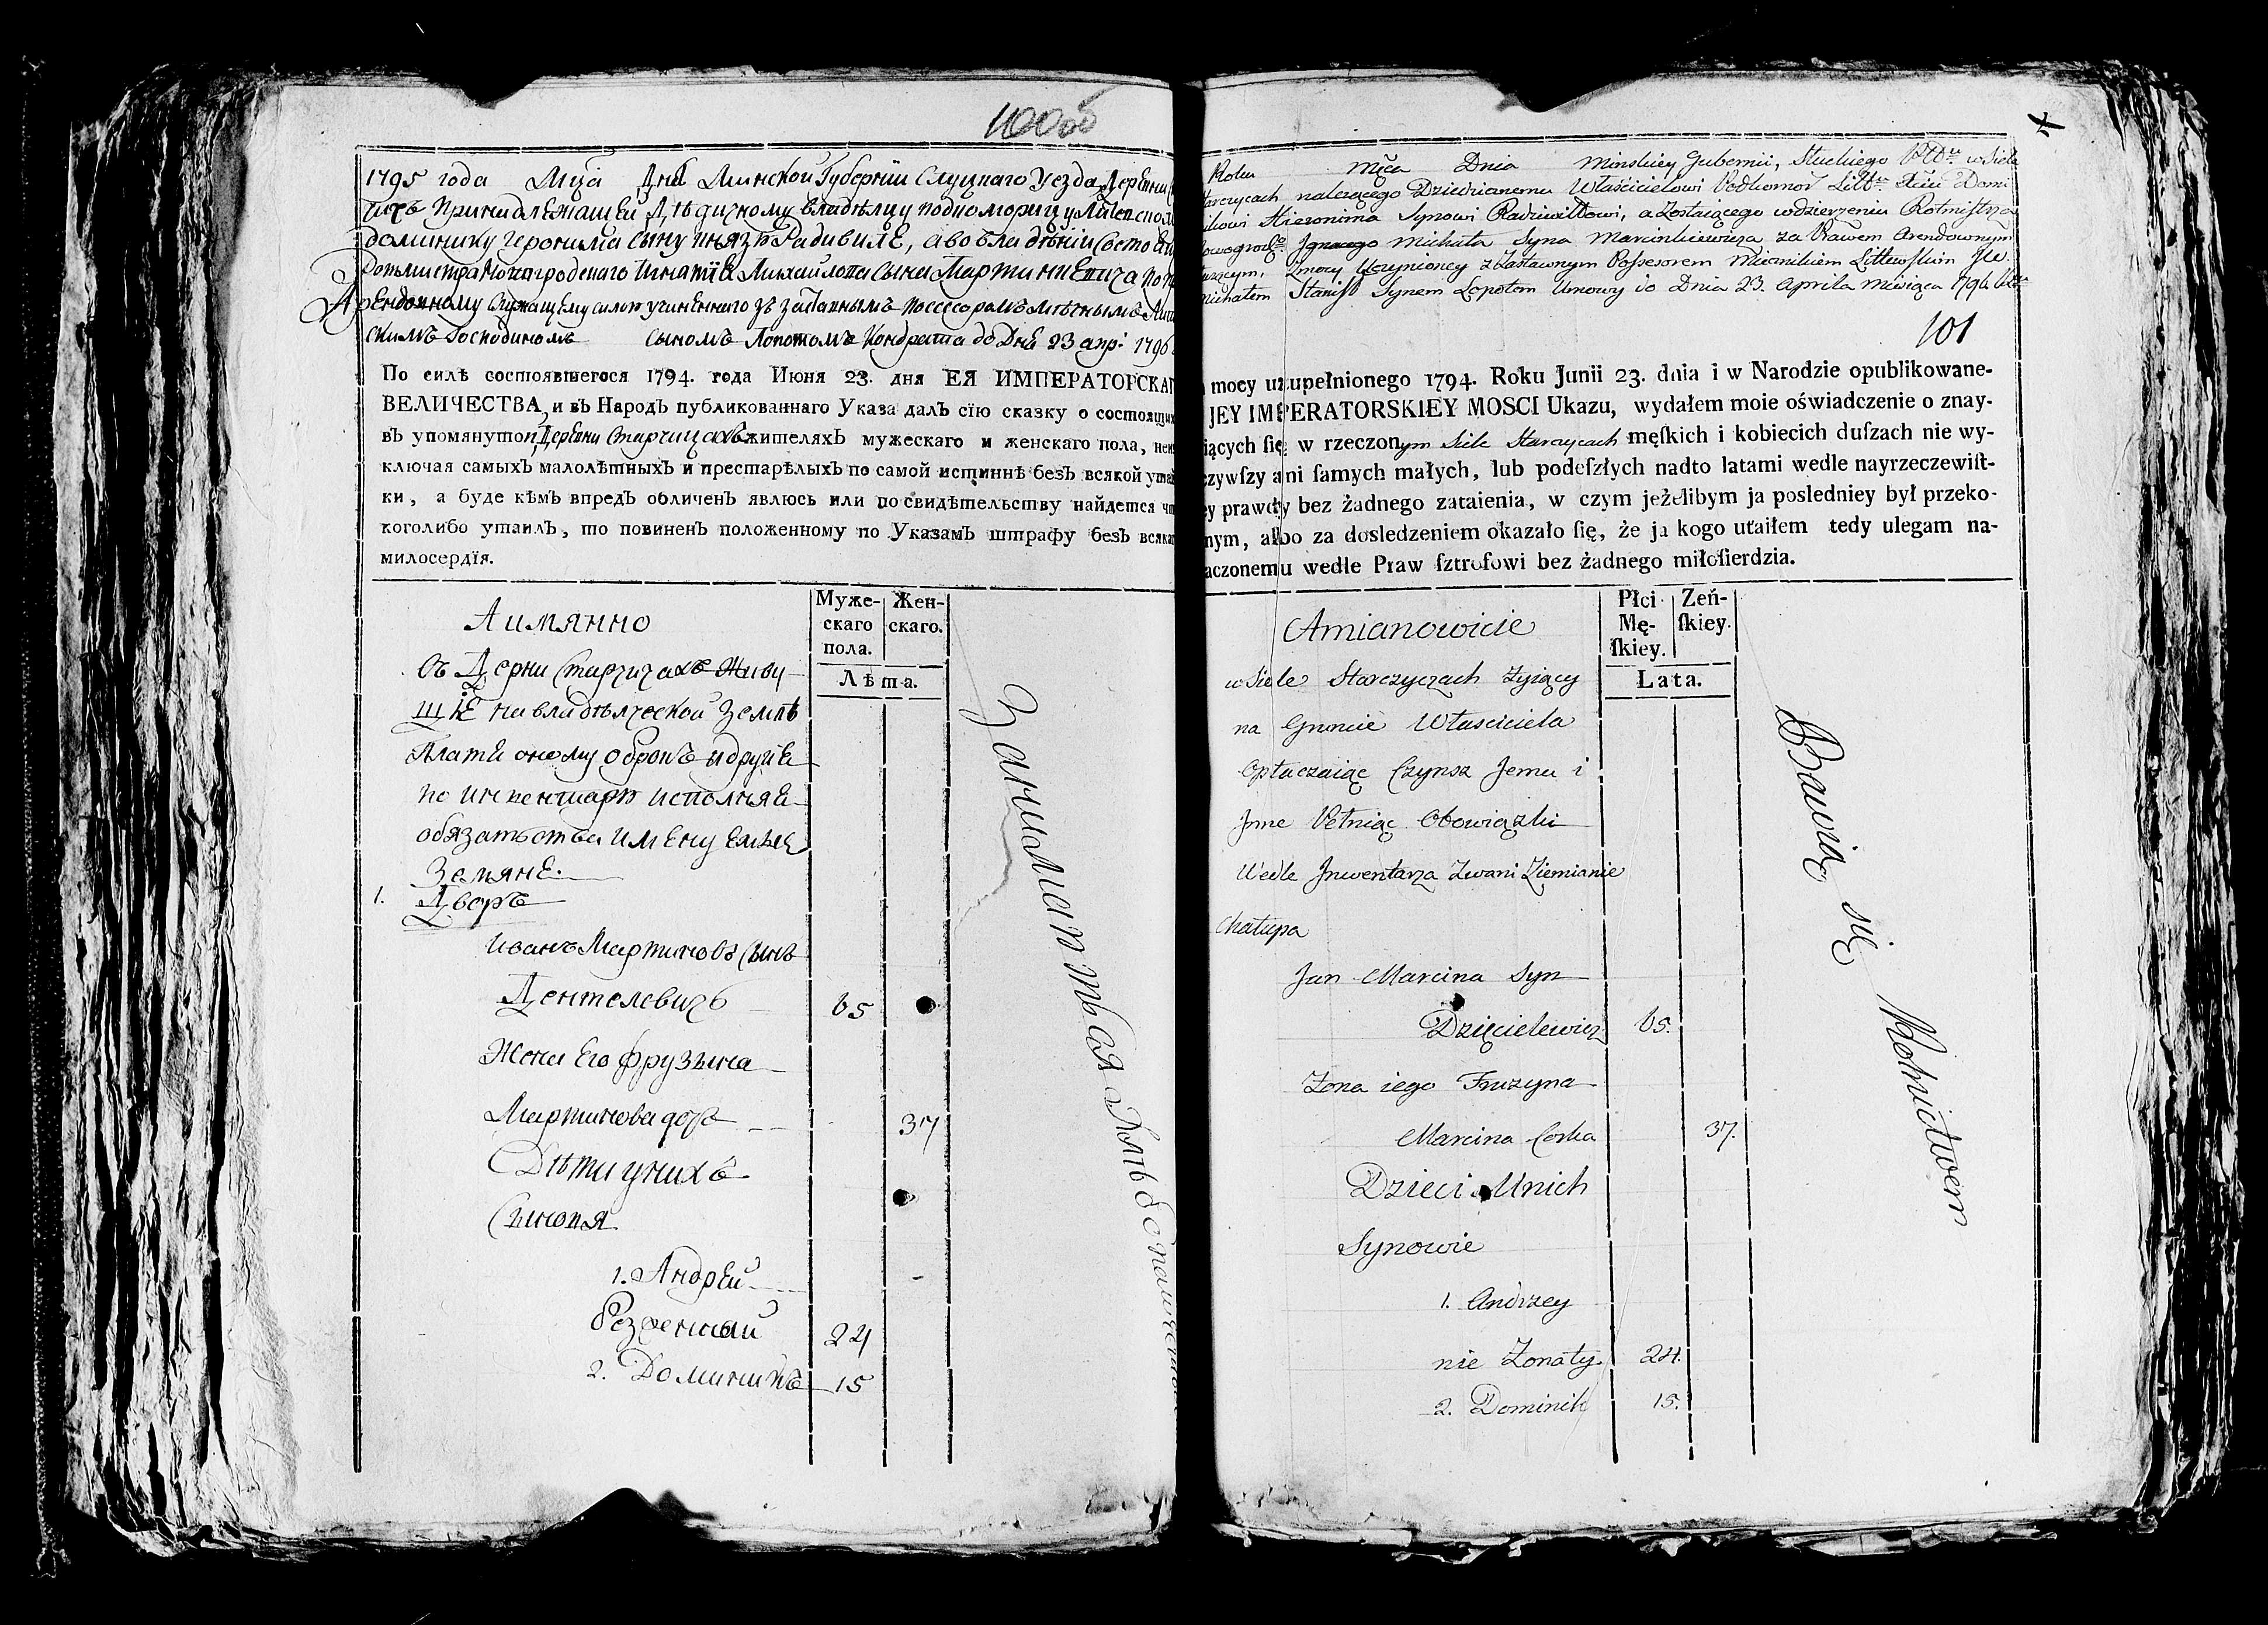 100 об
1795 года Мца Дня Минской Губернїи Слуцкаго Уезда Деревни
принадлежащей Дѣдичному владѣлцу подкоморицу Литовскому
доминику геронима сыну князю Радивилѣ, а во владѣнїи состоящей
Ротмистра Новагродскаго Игнатїя Михайлова сына Мартинкевича по
Арендовному служащему силою учиненнаго зъ заставнымъ посессоромъ мѣчнымъ
скимъ Господиномъ сыномъ Лопотомъ Контракта до Дня 23 апр: 1796
По силѣ состоявшегося 1794. года Июня 23. дня ЕЯ ИМПЕРАТОРСКАГ
ВЕЛИЧЕСТВА, и въ Народъ публикованнаго Указа далъ сїю сказку о состоящих
въ упомянутой Деревни Старчицахъ жителяхъ мужескаго и женскаго пола, неис
ключая самыхъ малолѣтныхъ и престарѣлыхъ по самой истиннѣ безъ всякой утай
ки, а буде кѣмъ впредъ обличенъ явлюсь или по свидѣтельству найдется чт
коголибо утаилъ, то повиненъ положенному по Указамъ штрафу безъ всякаг
милосердїя.
Муже-
скаго
пола.
Жен-
скаго.
Лѣта.
А имянно
въ Дерни Старчичахъ Живу
щїе на владѣлческой Землѣ
Платя оному оброкъ и другїя
по инвентарю исполняя
обязательства именуемые
Земяне.
1. Дворъ
Иванъ Мартиновъ Сынъ
Дентелевичъ 65
Жена Его Фрузына
Мартинова дочь 37
Дѣти у нихъ
Сыновя
1. Андрей
безженный 24
2. Доминикъ 15
Занимаются Хлѣбопашеством
Roku Mca Dnia Minskiey Gubernii, Sluckiego Pttu w Siele
Starczycach nalezącego Dziedzicznemu Właścicielowi Podkomor Litt. Xciu Domi
nikowi Hieronima Synowi Radziwiłłowi, a zostaiącego w dzierzeniu Rotmistrza
Nowogrodgo Ignacego Michała Syna Marcinkiewicza za Prawem Arendownym
służącym, zmocy Uczynioney z Zastawnym Possesorem Miecznikiem Littewskim JW.
Michałem Stanisł Synem Łopotem Umowy do Dnia 23. Aprila Miesiąca 1796. Roku
101
mocy uzupełnionego 1794. Roku Junii 23. dnia i w Narodzie opublikowane-
JEY IMPERATORSKIEY MOSCI Ukazu, wydałem moie oświadczenie o znay-
iących ſię w rzeczonym Siele Starczycach męſkich i kobiecich duſzach nie wy-
czywſzy ani ſamych małych, lub podeſzłych nadto latami wedle nayrzeczewiſt-
ey prawdy bez żadnego zataienia, w czym jeżelibym ja posledniey był przeko-
nym, albo za dosledzeniem okazało ſię, że ja kogo utaiłem tedy ulegam na-
aczonemu wedle Praw ſztrofowi bez żadnego miłoſierdzia.
Płci
Mę-
ſkiey.
Zeń-
ſkiey.
Lata.
Amianowicie
w Siele Starczyczach Zyiący
na Gruncie Własciciela
Opłaczaiąc Czynsz Jemu i
Jnne Pełniąc Obowiązki
Wedle Jnwentarza Zwani Ziemianie
Chałupa
Jan Marcina Syn
Dzięcielewicz 65.
Zona iego Fruzyna
Marcina Corka 37.
Dzieci Unich
Synowie
1. Andrzey
nie Zonaty 24.
2. Dominik 15.
Bawią się Rolnictwem